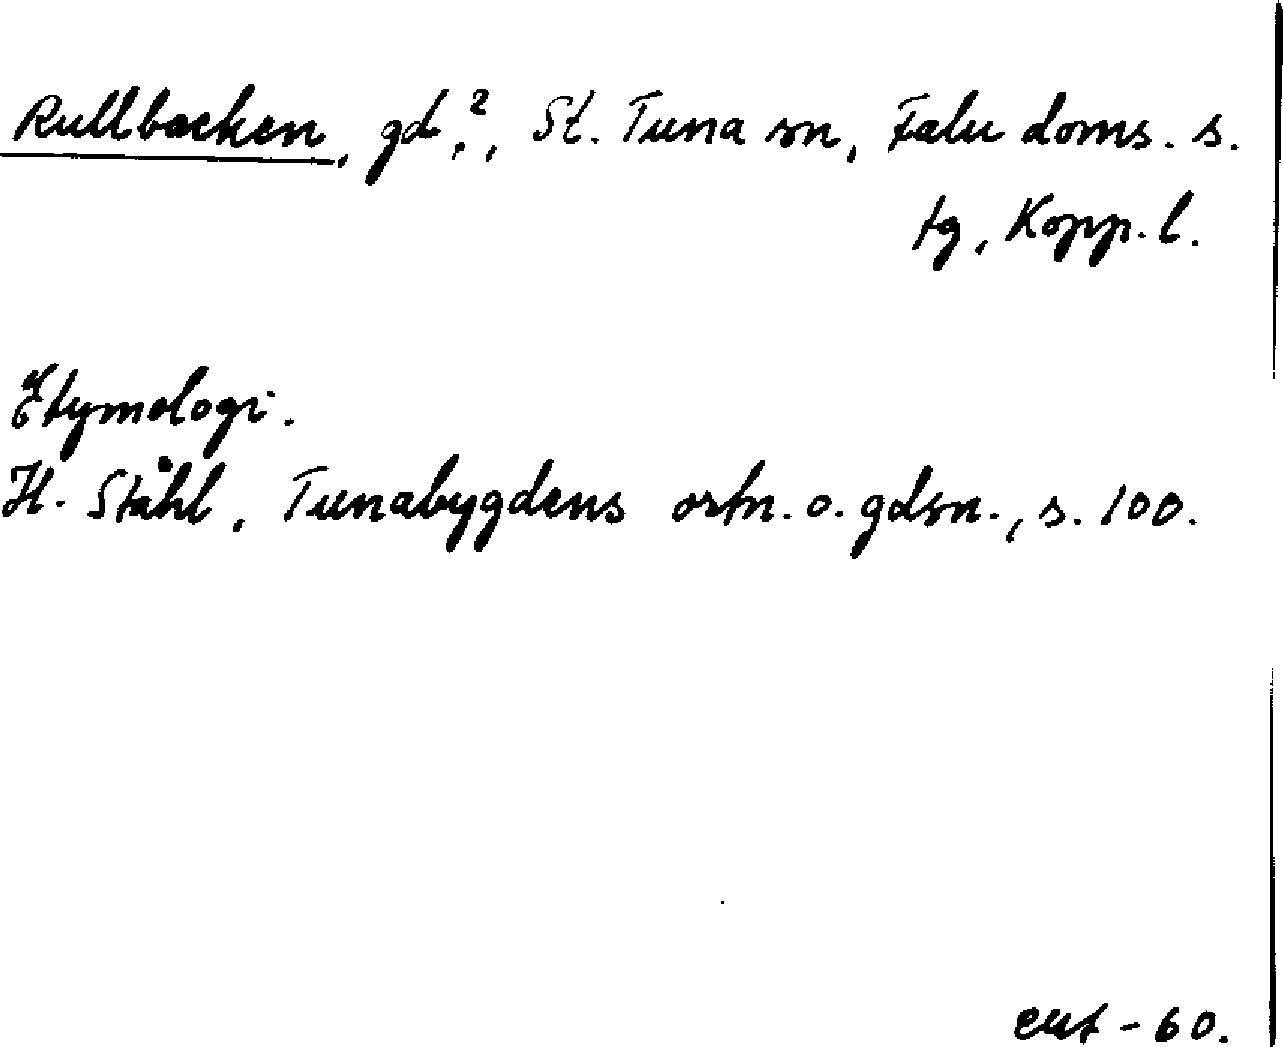 Rullbacken, gd,?, St. Tuna sn, Falu doms. s.
tg, Kopp. l.
Etymologi.
H. Ståhl, Tunabygdens ortn. o. gdsn., s. 100.
eut - 60.